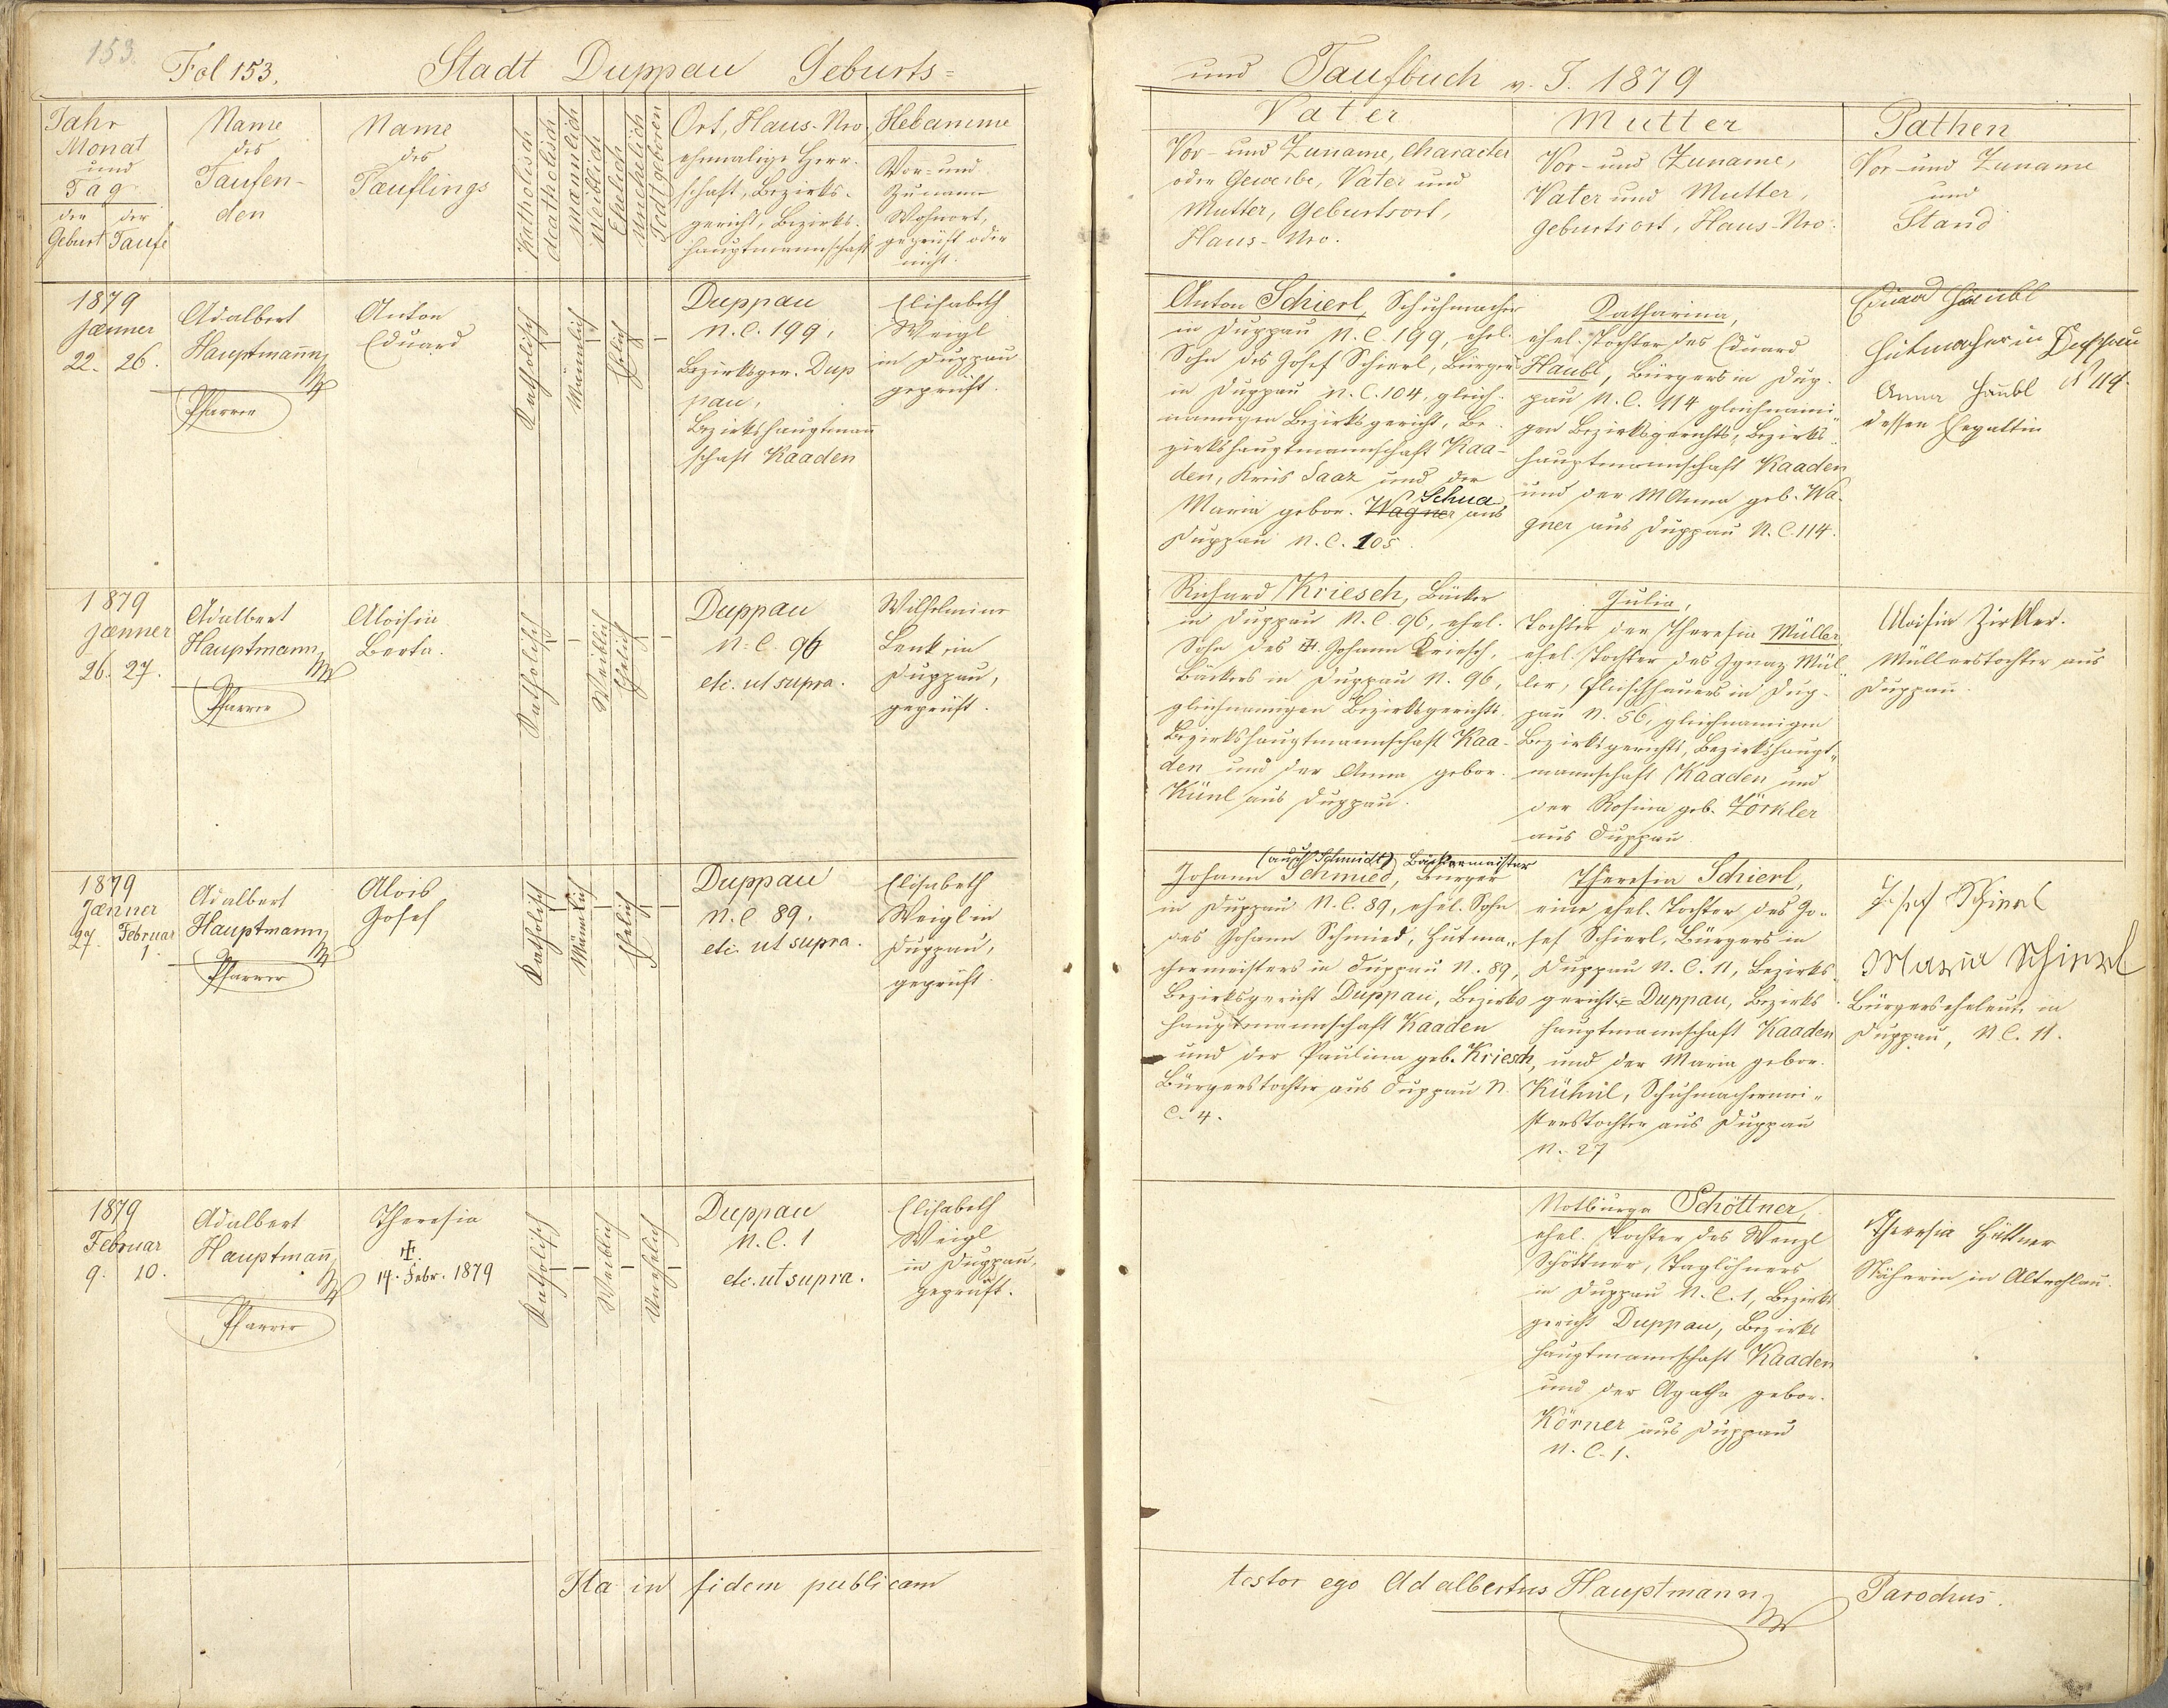 153.
Fol 153.
Stadt Duppau Geburts=
Jahr
Monat
und
Tag
der
Geburt
der
Taufe
Name
des
Taufen-
den
Name
des
Tæuflings
Katholisch
Acatholisch
mæmlich
weiblich
Ehelich
Unehelich
Todtgeboren
Ort, Haus-Nro
ehemalige Herr-
schaft, Bezirks-
gericht, Bezirks-
hauptmannschaft
Hebamme
Vor- und
Zuname
Wohnort,
geprüft oder
nicht.
1879
Jænner
22. 26.
Adalbert
Hauptmann
Pfarrer
Anton
Eduard
Katholisch
Männlich
Ehelich
Duppau
N.C. 199,
Bezirksger. Dup
pau,
Bezirkshauptmann
schaft Kaaden
Elisabeth
Weigl
in Duppau
geprüft.
1879
Jænner
26. 27.
Adalbert
Hauptmann
Pfarrer
Aloisia
Berta.
Katholisch
Weiblich
Ehelich
Duppau
N.C. 96
etc. ut supra.
Wilhelmine
Lenk, in
Duppau,
geprüft.
1879
Jænner
27. Februar
1.
Adalbert
Hauptmann
Pfarrer
Alois
Josef
Katholisch
Männlich
Ehelich
Duppau
N.C. 89.
etc. ut supra.
Elisabeth
Weigl in
Duppau,
geprüft.
1879
Februar
9. 10.
Adalbert
Hauptmañ
Pfarrer
Theresia
14. Febr. 1879
Katholisch
Weiblich
Unehelich
Duppau
N.C. 1
etc. ut supra.
Elisabeth
Weigl
in Duppau,
geprüft.
Ita in fidem publicam
und Taufbuch v. J. 1879
Vater
Vor- und Zuname, Character
oder Gewerbe, Vater und
Mutter, Geburtsort,
Haus-Nro.
Mutter
Vor- und Zuname,
Vater und Mutter,
Geburtsort, Haus-Nro.
Pathen
Vor- und Zuname
und
Stand
Anton Schierl, Schuhmacher
in Duppau N.C. 199, ehel.
Sohn des Josef Schierl, Bürgers
in Duppau N.C. 104, gleich-
namigen Bezirksgericht, Be-
zirkshauptmannschaft Kaa-
den, Kreis Saaz und der
Schua
Maria gebor. Wagner aus
Duppau N.C. 105.
Katharina,
ehel. Tochter des Eduard
Haubl, Bürgers in Dup-
pau N.C. 114 gleichnami-
gen Bezirksgerichts, Bezirks-
hauptmannschaft Kaaden
und der M Anna geb. Wa-
gner aus Duppau N.C. 114.
Eduard Haubl
Hutmacher in Duppau
Anna Haubl N 114
dessen Ehegattin
Richard Kriesch, Bäcker
in Duppau N.C. 96, ehel.
Sohn des Johann Kriesch,
Bäckers in Duppau N. 96,
gleichnamigen Bezirksgerichts
Bezirkshauptmannschaft Kaa-
den und der Anna gebor.
Künl aus Duppau.
Julia,
Tochter der Theresia Müller
ehel. Tochter des Ignaz Mül-
ler, Fleischhauers in Dup-
pau N. 56, gleichnamigen
Bezirksgerichts, Bezirkshaupt-
mannschaft Kaaden und
der Rosina geb. Zörkler
aus Duppau
Aloisia Zirkler.
Müllerstochter aus
Duppau.
(auch Schmidt) Bäckermeister
Johann Schmied, Bürger
in Duppau N.C. 89, ehel. Sohn
des Johann Schmied, Hutma-
chermeisters in Duppau N. 89,
Bezirksgericht Duppau, Bezirks
hauptmannschaft Kaaden
und der Paulina geb. Kriesch,
Bürgerstochter aus Duppau N.
C. 4.
Theresia Schierl,
eine ehel. Tochter des Jo-
sef Schierl, Bürgers in
Duppau N.C. 11, Bezirks-
gericht Duppau, Bezirks
hauptmannschaft Kaaden
und der Maria gebor.
Kühnl, Schuhmachermei-
sterstochter aus Duppau
N. 27
Josef Schierl
Maria Schierl
Bürgerseheleute in
Duppau, N.C. 11.
Notburga Schöttner,
ehel. Tochter des Wenzl
Schöttner, Taglöhners
in Duppau N.C. 1, Bezirks
gericht Duppau, Bezirks
hauptmannschaft Kaaden
und der Agatha gebor.
Körner aus Duppau
N.C. 1.
Theresia Hüttner
Näherin in Altrohlau.
testor ego Adalbertus Hauptmann
Parochus.